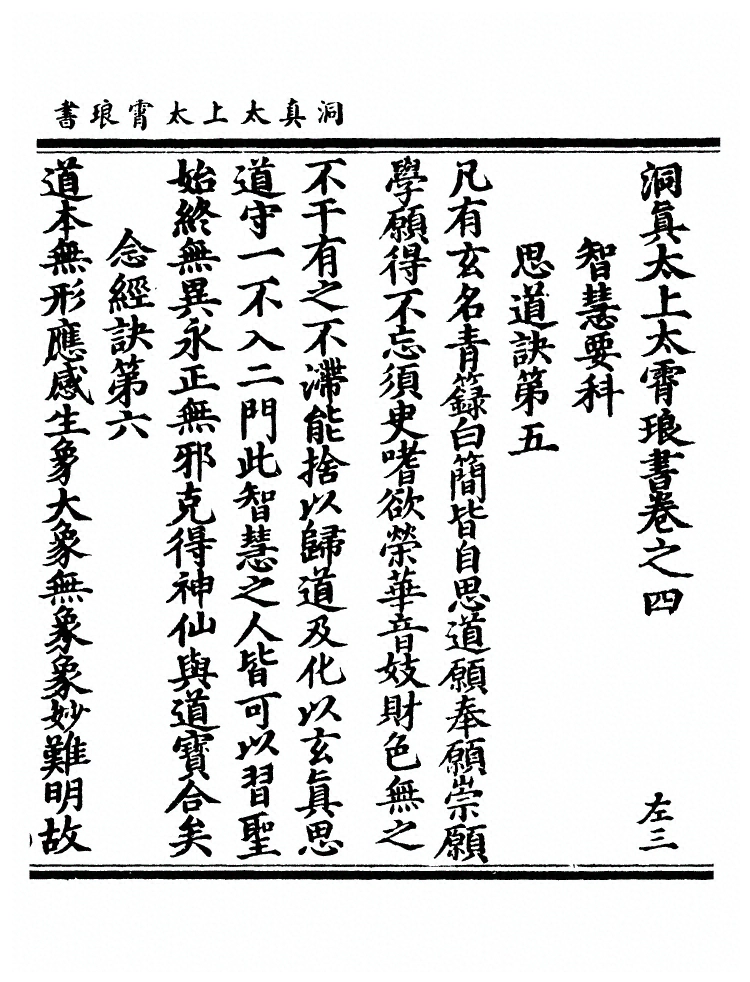 洞真太上太霄琅書
洞真太上太霄琅書卷之四　左三
智慧要科
思道訣第五
凡有玄名青籙白簡皆自思道願奉願崇願
學願得不忘須臾嗜欲榮華音妓財色無之
不干有之不滯能捨以歸道及化以玄真思
道守一不入二門此智慧之人皆可以習聖
始終無異永正無邪克得神仙與道寶合矣
念經訣第六
道本無形應感生象大象無象象妙難明故